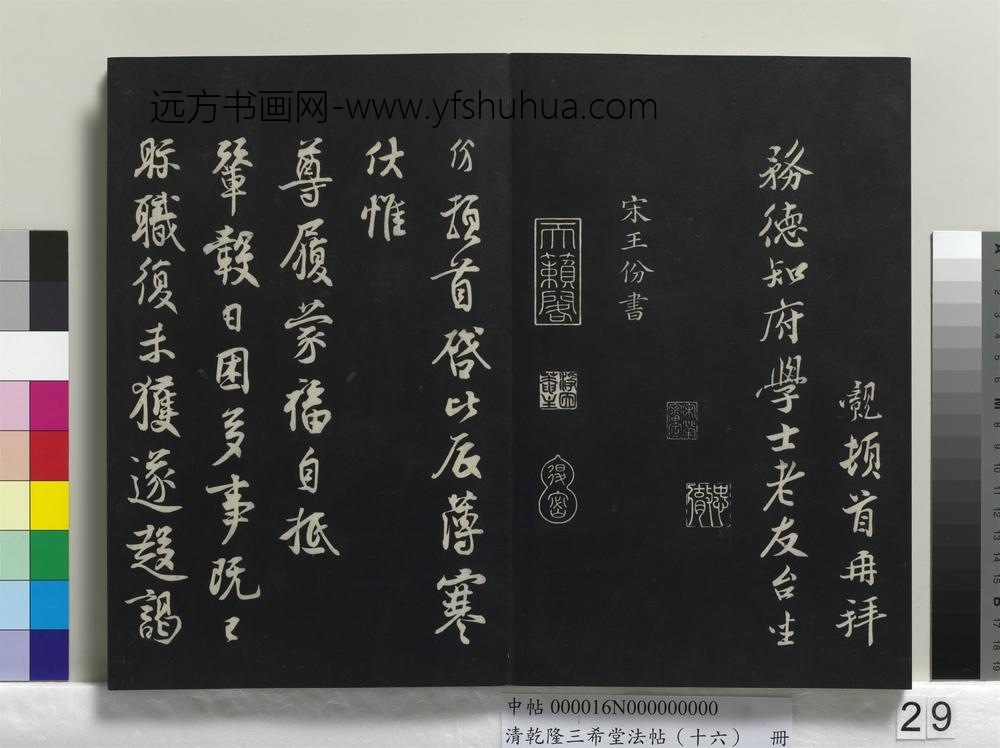 远方书画网-www.yfshuhua.com
觌頓首再拜
務德知府學士老友台坐
宋王份書
天籟閣
份頓首啓比辰薄寒
伏惟
尊履蒙福自抵
輦轂日困多事既已
眎職復未獲遂趍謁
中帖 000016N000000000
清乾隆三希堂法帖(十六) 冊
29